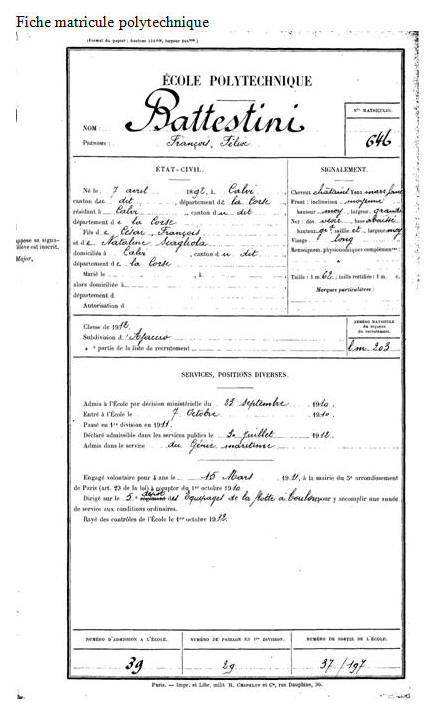 Fiche matricule polytechnique
ÉCOLE POLYTECHNIQUE
Nos MATRICULES.
NOM : Battestini
646
Prénoms : François, Félix
ÉTAT-CIVIL.
SIGNALEMENT.
Né le 7 avril 1892, à Calvi
canton du dit, département de la Corse
résidant à Calvi, canton du dit
département de la Corse
Fils de César, François
et de Nataline Scagliola
domiciliés à Calvi, canton du dit
département de la Corse
Marié le , à
alors domiciliée à
département d
Autorisation d
Cheveux châtains Yeux
Front : inclinaison moyenne
hauteur moy, largeur grande
Nez : dos vexe base abaissé
hauteur gde saillie et largeur moy
Visage long
Renseignem. physionomiques complémenres :
Taille : 1 m. 62 ; taille rectifiée : 1 m. c.
Marques particulières :
ppose au signa-
élève est inscrit.
Major,
Classe de 1912.
Subdivision d'Ajaccio
e partie de la liste de recrutement
NUMÉRO MATRICULE
du registre
de recrutement.
l.m. 203
SERVICES, POSITIONS DIVERSES.
Admis à l'École par décision ministérielle du 22 septembre 1910.
Entré à l'École le 7 Octobre 1910.
Passé en 1re division en 1911.
Déclaré admissible dans les services publics le 30 juillet 1912.
Admis dans le service du Génie maritime
Engagé volontaire pour 4 ans le 15 Mars 1911, à la mairie du 5e arrondissement
de Paris (art. 23 de la loi) à compter du 1er octobre 1910
Dirigé sur le 5e dépôt des Equipages de la flotte à Toulon pour y accomplir une année
de service aux conditions ordinaires.
Rayé des contrôles de l'École le 1er octobre 1912.
NUMÉRO D'ADMISSION A L'ÉCOLE.
NUMÉRO DE PASSAGE EN 1re DIVISION.
NUMÉRO DE SORTIE DE L'ÉCOLE.
39
29
37/197
Paris. — Impr. et Libr. milit R. CHAPELOT et Ce, rue Dauphine, 30.